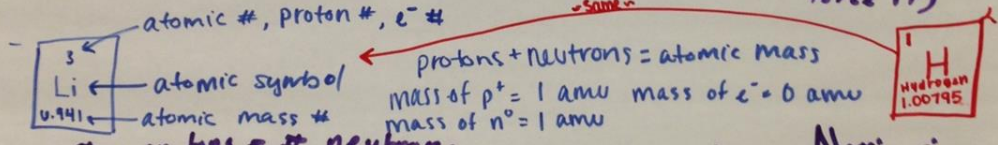 same
atomic #, proton #, e⁻ #
3
Li
6.941
atomic symbol
atomic mass #
protons + neutrons = atomic mass
mass of p⁺ = 1 amu mass of e⁻ = 0 amu
mass of n° = 1 amu
1
H
Hydrogen
1.00795